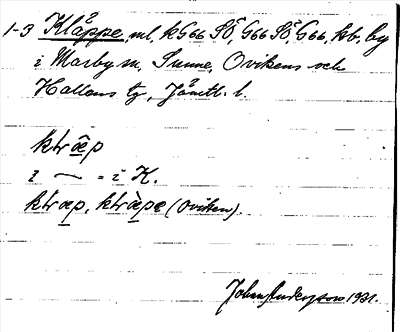 1-3 Kläppe, ml, kG66 SÖ, G66 SÖ, G66, kb, by
i Marby sn, Sunne, Ovikens och
Hallens tg, Jämtl. l.
kträp
i ⁓ = i K.
kträp, kträpe (Oviken).
Johan Anderzson 1921.